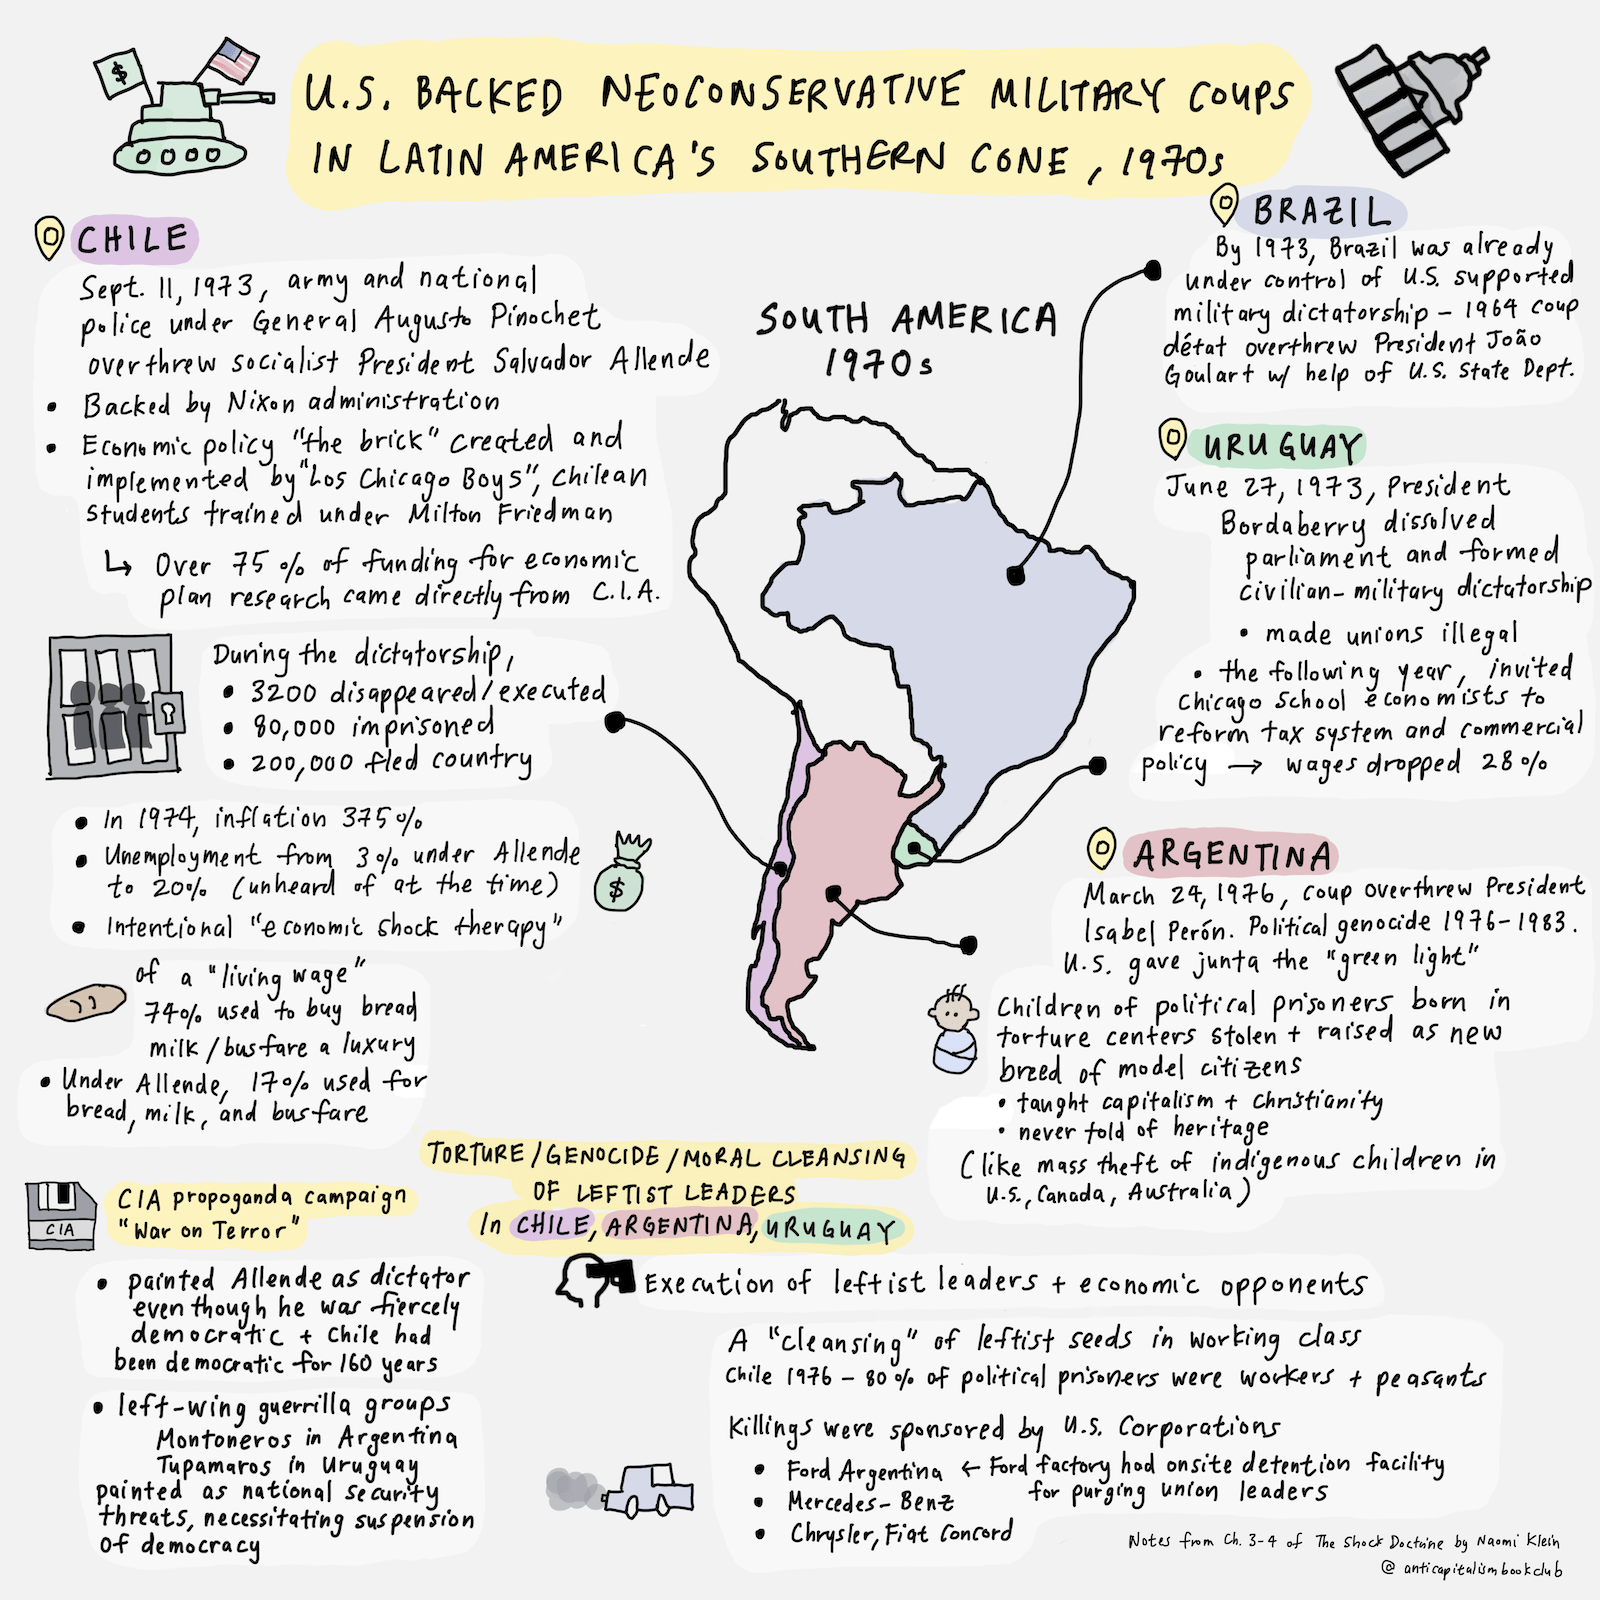 U.S. BACKED NEOCONSERVATIVE MILITARY COUPS
IN LATIN AMERICA'S SOUTHERN CONE, 1970s
$
CHILE
Sept. 11, 1973, army and national
police under General Augusto Pinochet
overthrew socialist President Salvador Allende
• Backed by Nixon administration
• Economic policy "the brick" created and
implemented by "Los Chicago Boys", Chilean
students trained under Milton Friedman
↳ Over 75% of funding for economic
plan research came directly from C.I.A.
During the dictatorship,
• 3200 disappeared/executed
• 80,000 imprisoned
• 200,000 fled country
• In 1974, inflation 375%
• Unemployment from 3% under Allende
to 20% (unheard of at the time)
• Intentional "economic shock therapy"
$
of a "living wage"
74% used to buy bread
milk/busfare a luxury
• Under Allende, 17% used for
bread, milk, and busfare
SOUTH AMERICA
1970s
BRAZIL
By 1973, Brazil was already
under control of U.S. supported
military dictatorship - 1964 coup
détat overthrew President João
Goulart w/ help of U.S. State Dept.
URUGUAY
June 27, 1973, President
Bordaberry dissolved
parliament and formed
civilian-military dictatorship
• made unions illegal
• the following year, invited
Chicago School economists to
reform tax system and commercial
policy → wages dropped 28%
ARGENTINA
March 24, 1976, coup overthrew President
Isabel Perón. Political genocide 1976-1983.
U.S. gave junta the "green light"
Children of political prisoners born in
torture centers stolen + raised as new
breed of model citizens
• taught capitalism + Christianity
• never told of heritage
(like mass theft of indigenous children in
U.S., Canada, Australia)
CIA
CIA propoganda campaign
"War on Terror"
• painted Allende as dictator
even though he was fiercely
democratic + Chile had
been democratic for 160 years
• left-wing guerrilla groups
Montoneros in Argentina
Tupamaros in Uruguay
painted as national security
threats, necessitating suspension
of democracy
TORTURE/GENOCIDE/MORAL CLEANSING
OF LEFTIST LEADERS
In CHILE, ARGENTINA, URUGUAY
Execution of leftist leaders + economic opponents
A "cleansing" of leftist seeds in working class
Chile 1976 - 80% of political prisoners were workers + peasants
Killings were sponsored by U.S. Corporations
• Ford Argentina ← Ford factory had onsite detention facility
for purging union leaders
• Mercedes-Benz
• Chrysler, Fiat Concord
Notes from Ch. 3-4 of The Shock Doctrine by Naomi Klein
@anticapitalismbookclub